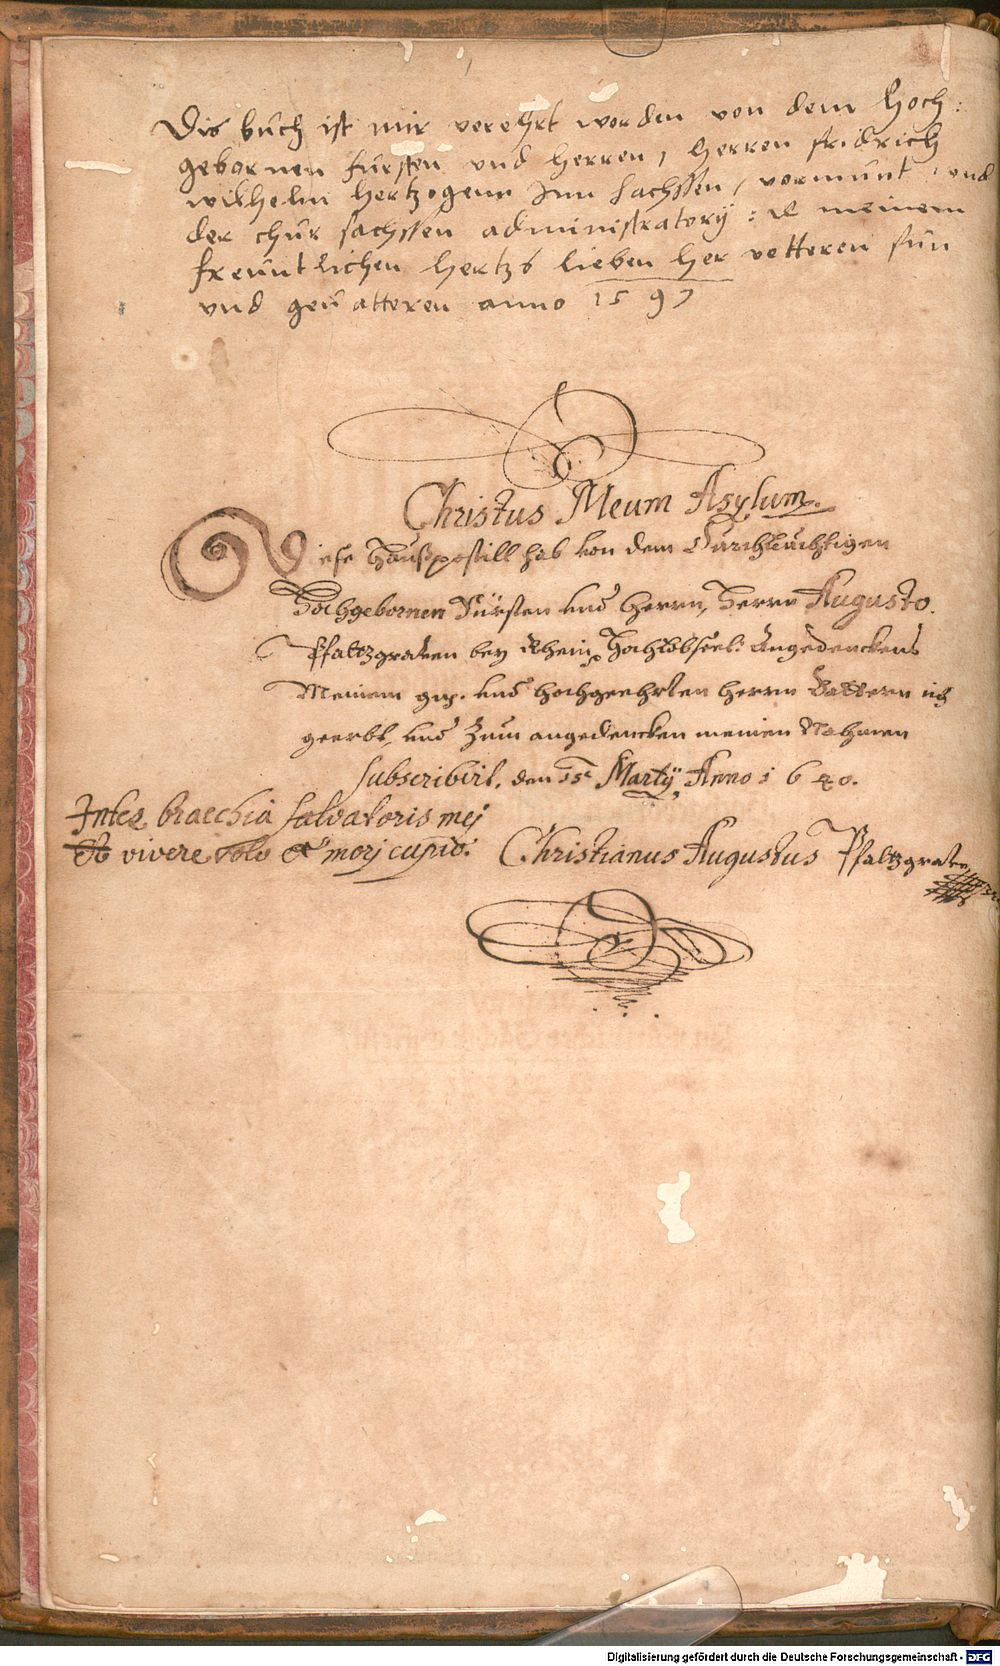 Dis buch ist mir verehrt worden von dem Hoch:
gebornen fursten und Herren, Herren fridrich
wilhelm Hertzogenn Inn sachssen, vormunt, und
der chur sachssen administratorÿ: meinem
freuntlichen Hertzs lieben Her vetteren sun
und geuatteren anno 1597
Christus Meum Asylum.
Diese Haußpostill hab von dem Durchleuchtigen
Hochgebornen Fürsten und Herrn, Herrn Augusto.
Pfaltzgraven bey Rhein, Hochlöbseel: Angedenckens
Meinem gn. und hochgeehrten Herrn Vattern ich
geerbt, und Zum angedencken meinen Nahmen
subscribirt, den 15 Martÿ, Anno 1640.
Inter bracchia salvatoris mej
Et vivere volo et morj cupio.
Christianus Augustus Pfaltzgrave
Digitalisierung gefördert durch die Deutsche Forschungsgemeinschaft - DFG